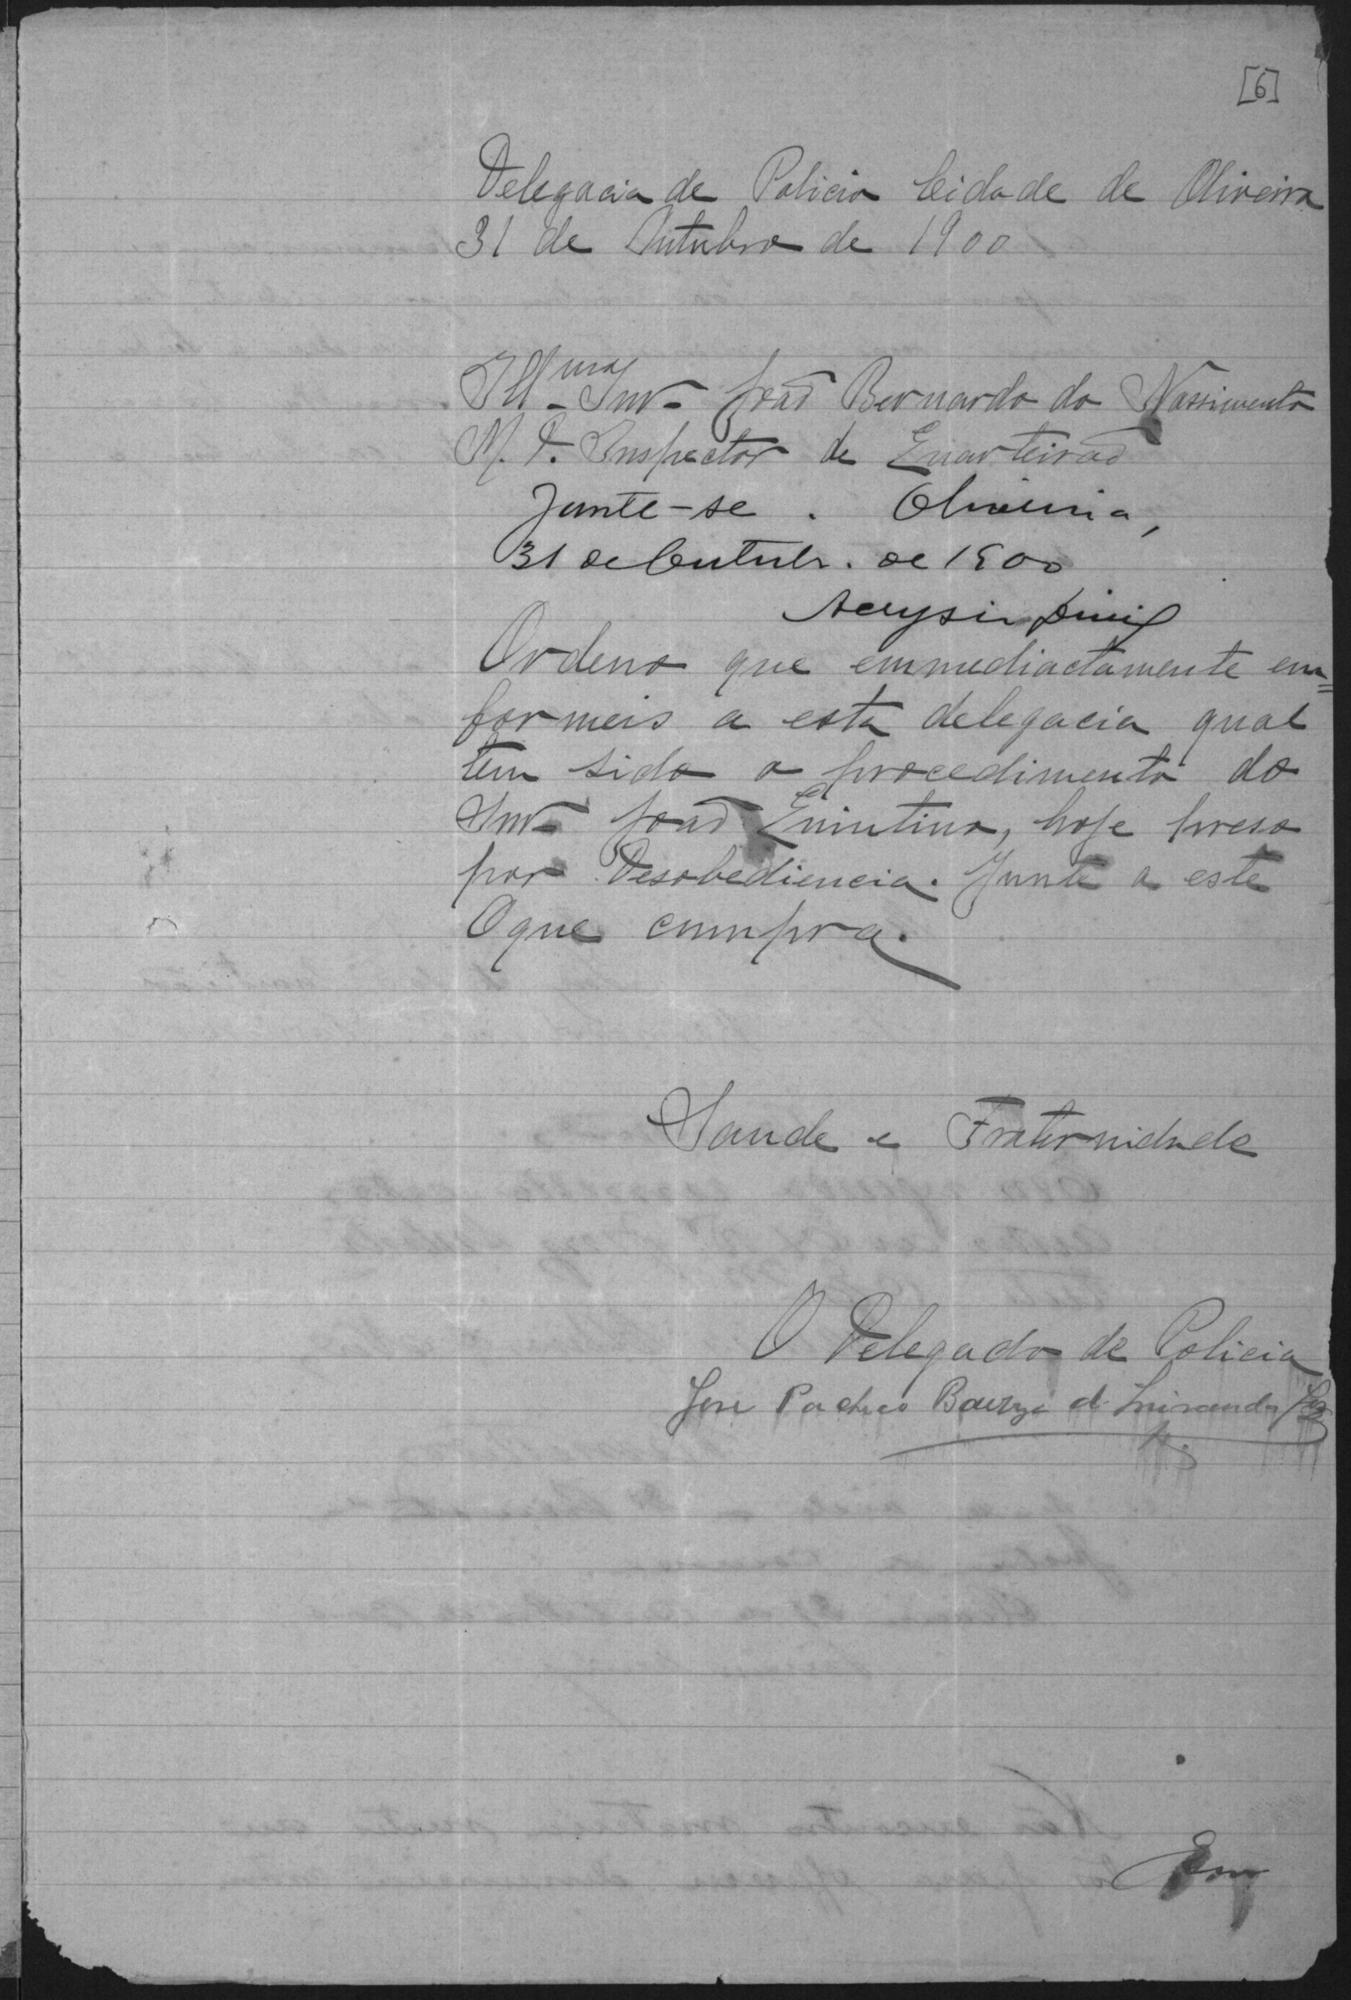 [6]
Delegacia de Policia Cidade de Oliveira
31 de Outubro de 1900
Ill.mo Snr. João Bernardo do Nassimento
M. D. Inspector de Quarteirão
Junte-se. Oliveira,
31 de Outubr. de 1900
Ordeno que emmediactamente em=
formeis a esta delegacia qual
tem sido o procedimento do
Snr. João Quintino, hoje preso
por Desobediencia. Junte a este
O que cumpra.
Saude e Fraternidade
O Delegado de Policia
Jose Pacheco
Em